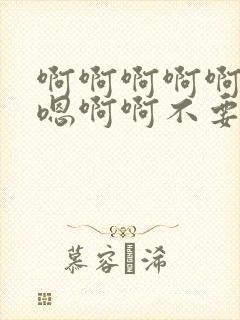 啊啊啊啊啊
嗯啊啊不要
慕容�浠